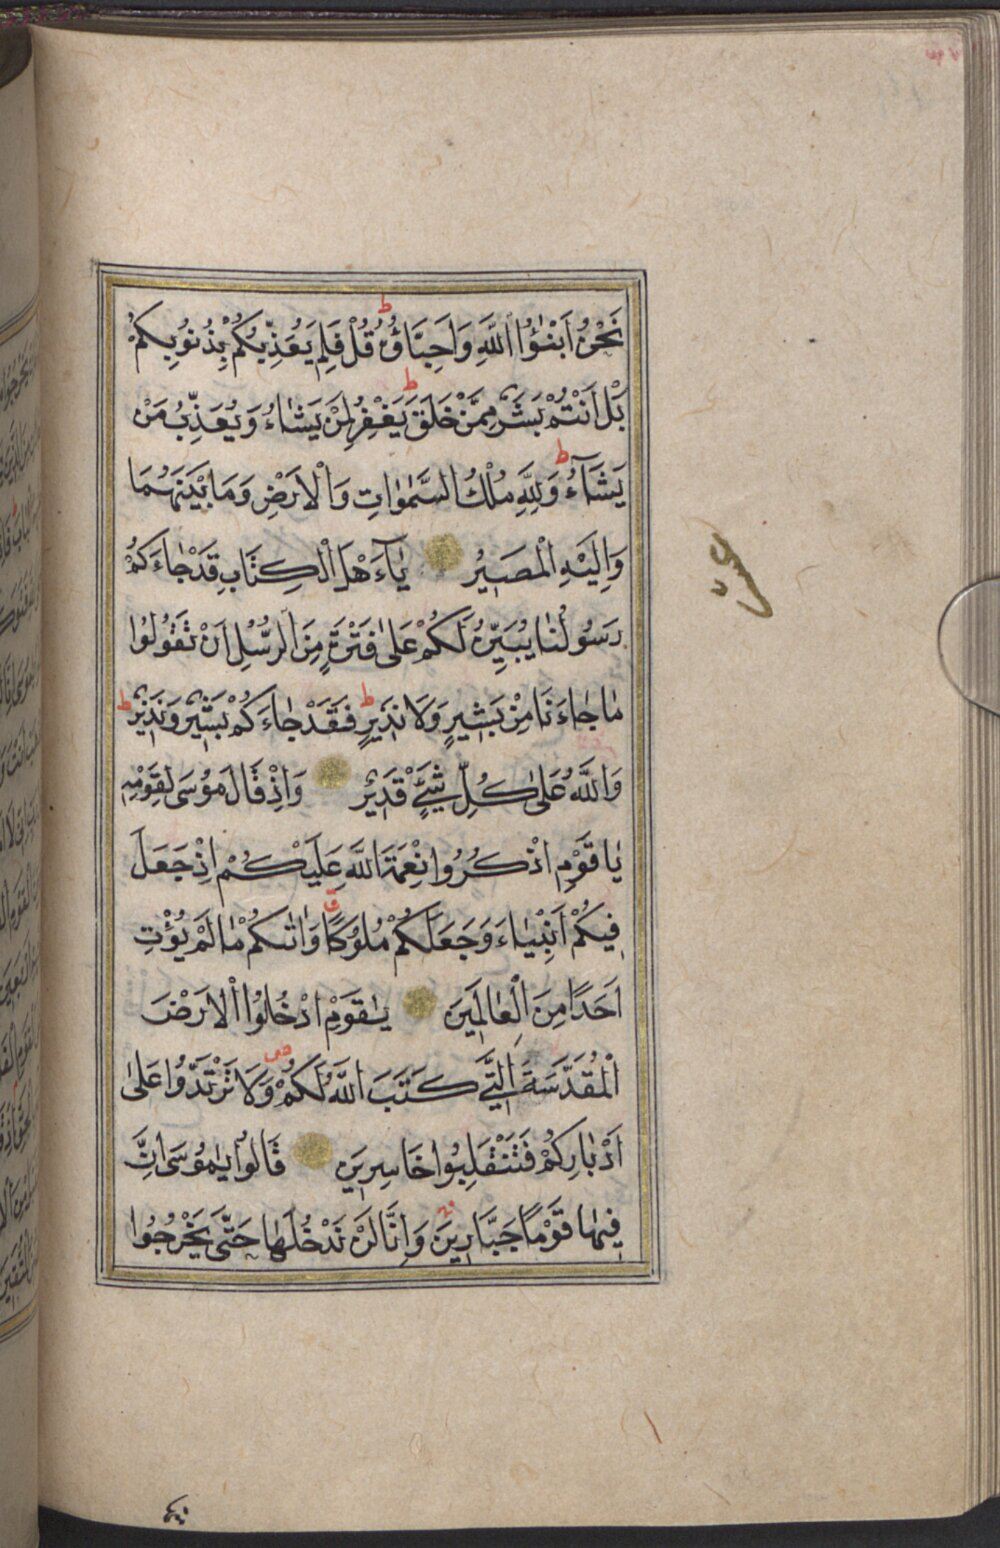 نَحْنُ اَبْنٰٓؤُا اللّٰهِ وَاَحِبَّاؤُهُ قُلْ فَلِمَ يُعَذِّبُكُمْ بِذُنُوبِكُمْ
بَلْ اَنْتُمْ بَشَرٌ مِمَّنْ خَلَقَ يَغْفِرُ لِمَنْ يَشَاءُ وَيُعَذِّبُ مَنْ
يَشَآءُ وَلِلّٰهِ مُلْكُ السَّمٰوَاتِ وَالْاَرْضِ وَمَا بَيْنَهُمَا
وَاِلَيْهِ الْمَصِيرُ يَآءَهْلَ الْكِتَابِ قَدْ جَاءَكُمْ
رَسُولُنَا يُبَيِّنُ لَكُمْ عَلٰى فَتْرَةٍ مِنَ الرُّسُلِ اَنْ تَقُولُوا
مَا جَاءَنَا مِنْ بَشِيرٍ وَلَا نَذِيرٍ فَقَدْ جَاءَكُمْ بَشِيرٌ وَنَذِيرٌ
وَاللّٰهُ عَلٰى كُلِّ شَيْءٍ قَدِيرٌ وَاِذْ قَالَ مُوسَى لِقَوْمِهِ
يَا قَوْمِ اذْكُرُوا نِعْمَةَ اللّٰهِ عَلَيْكُمْ اِذْ جَعَلَ
فِيكُمْ اَنْبِيَاءَ وَجَعَلَكُمْ مُلُوكًا وَاٰتٰىكُمْ مَا لَمْ يُؤْتِ
اَحَدًا مِنَ الْعَالَمِينَ يٰقَوْمِ ادْخُلُوا الْاَرْضَ
الْمُقَدَّسَةَ الَّتِي كَتَبَ اللّٰهُ لَكُمْ وَلَا تَرْتَدُّوا عَلٰى
اَدْبَارِكُمْ فَتَنْقَلِبُوا خَاسِرِينَ قَالُوا يٰمُوسَى اِنَّ
فِيهَا قَوْمًا جَبَّارِينَ وَاِنَّا لَنْ نَدْخُلَهَا حَتّٰى يَخْرُجُوا